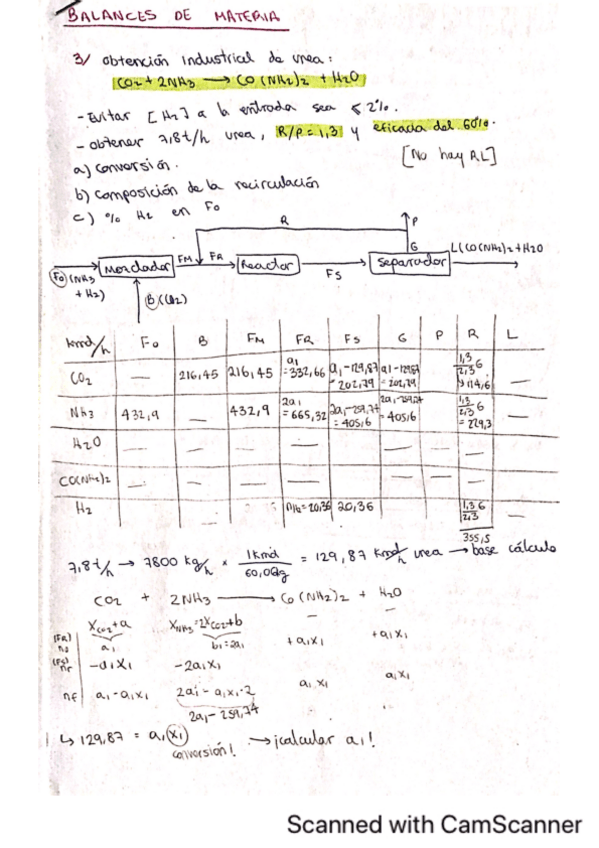 BALANCES DE MATERIA
3/ obtención industrial de urea:
CO2 + 2NH3 → CO(NH2)2 + H2O
- Evitar [H2] a la entrada sea ≤ 2%.
- obtener 7,8t/h urea, R/P = 1,3 y eficacia del 60%.
a) conversión. [No hay RL]
b) composición de la recirculación
c) % H2 en Fo
R P
G L(CO(NH2)2 + H2O
Fo (NH3 + H2) Mezclador FM FR Reactor FS Separador
B(CO2)
kmol/h Fo B FM FR FS G P R L
CO2 — 216,45 216,45 a1 = 332,66 a1-129,87 = 202,79 a1-129,87 = 202,79 1,3/2,3 G 114,6 —
NH3 432,9 — 432,9 2a1 = 665,32 2a1-259,74 = 405,6 2a1-259,74 = 405,6 1,3/2,3 G = 229,3 —
H2O — — — — —
CO(NH2)2 — — — — —
H2 — nH2=20,36 20,36 1,3/2,3 G —
355,5
7,8t/h → 7800 kg/h × 1kmol/60,06kg = 129,87 kmol/h urea → base cálculo
CO2 + 2NH3 → CO(NH2)2 + H2O
XCO2+a XNH3=2XCO2+b — —
(FR) no a1 b1=2a1 + a1X1 + a1X1
(FS) nr -a1X1 -2a1X1
nf a1-a1X1 2a1-a1X1·2 a1X1 a1X1
2a1-259,74
↳ 129,87 = a1(X1) → ¡calcular a1!
conversión!
Scanned with CamScanner